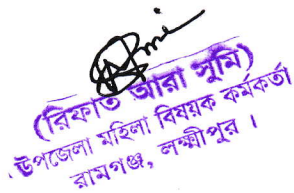 (রিফাত আরা সুমি)
উপজেলা মহিলা বিষয়ক কর্মকর্তা
রামগঞ্জ, লক্ষ্মীপুর ।